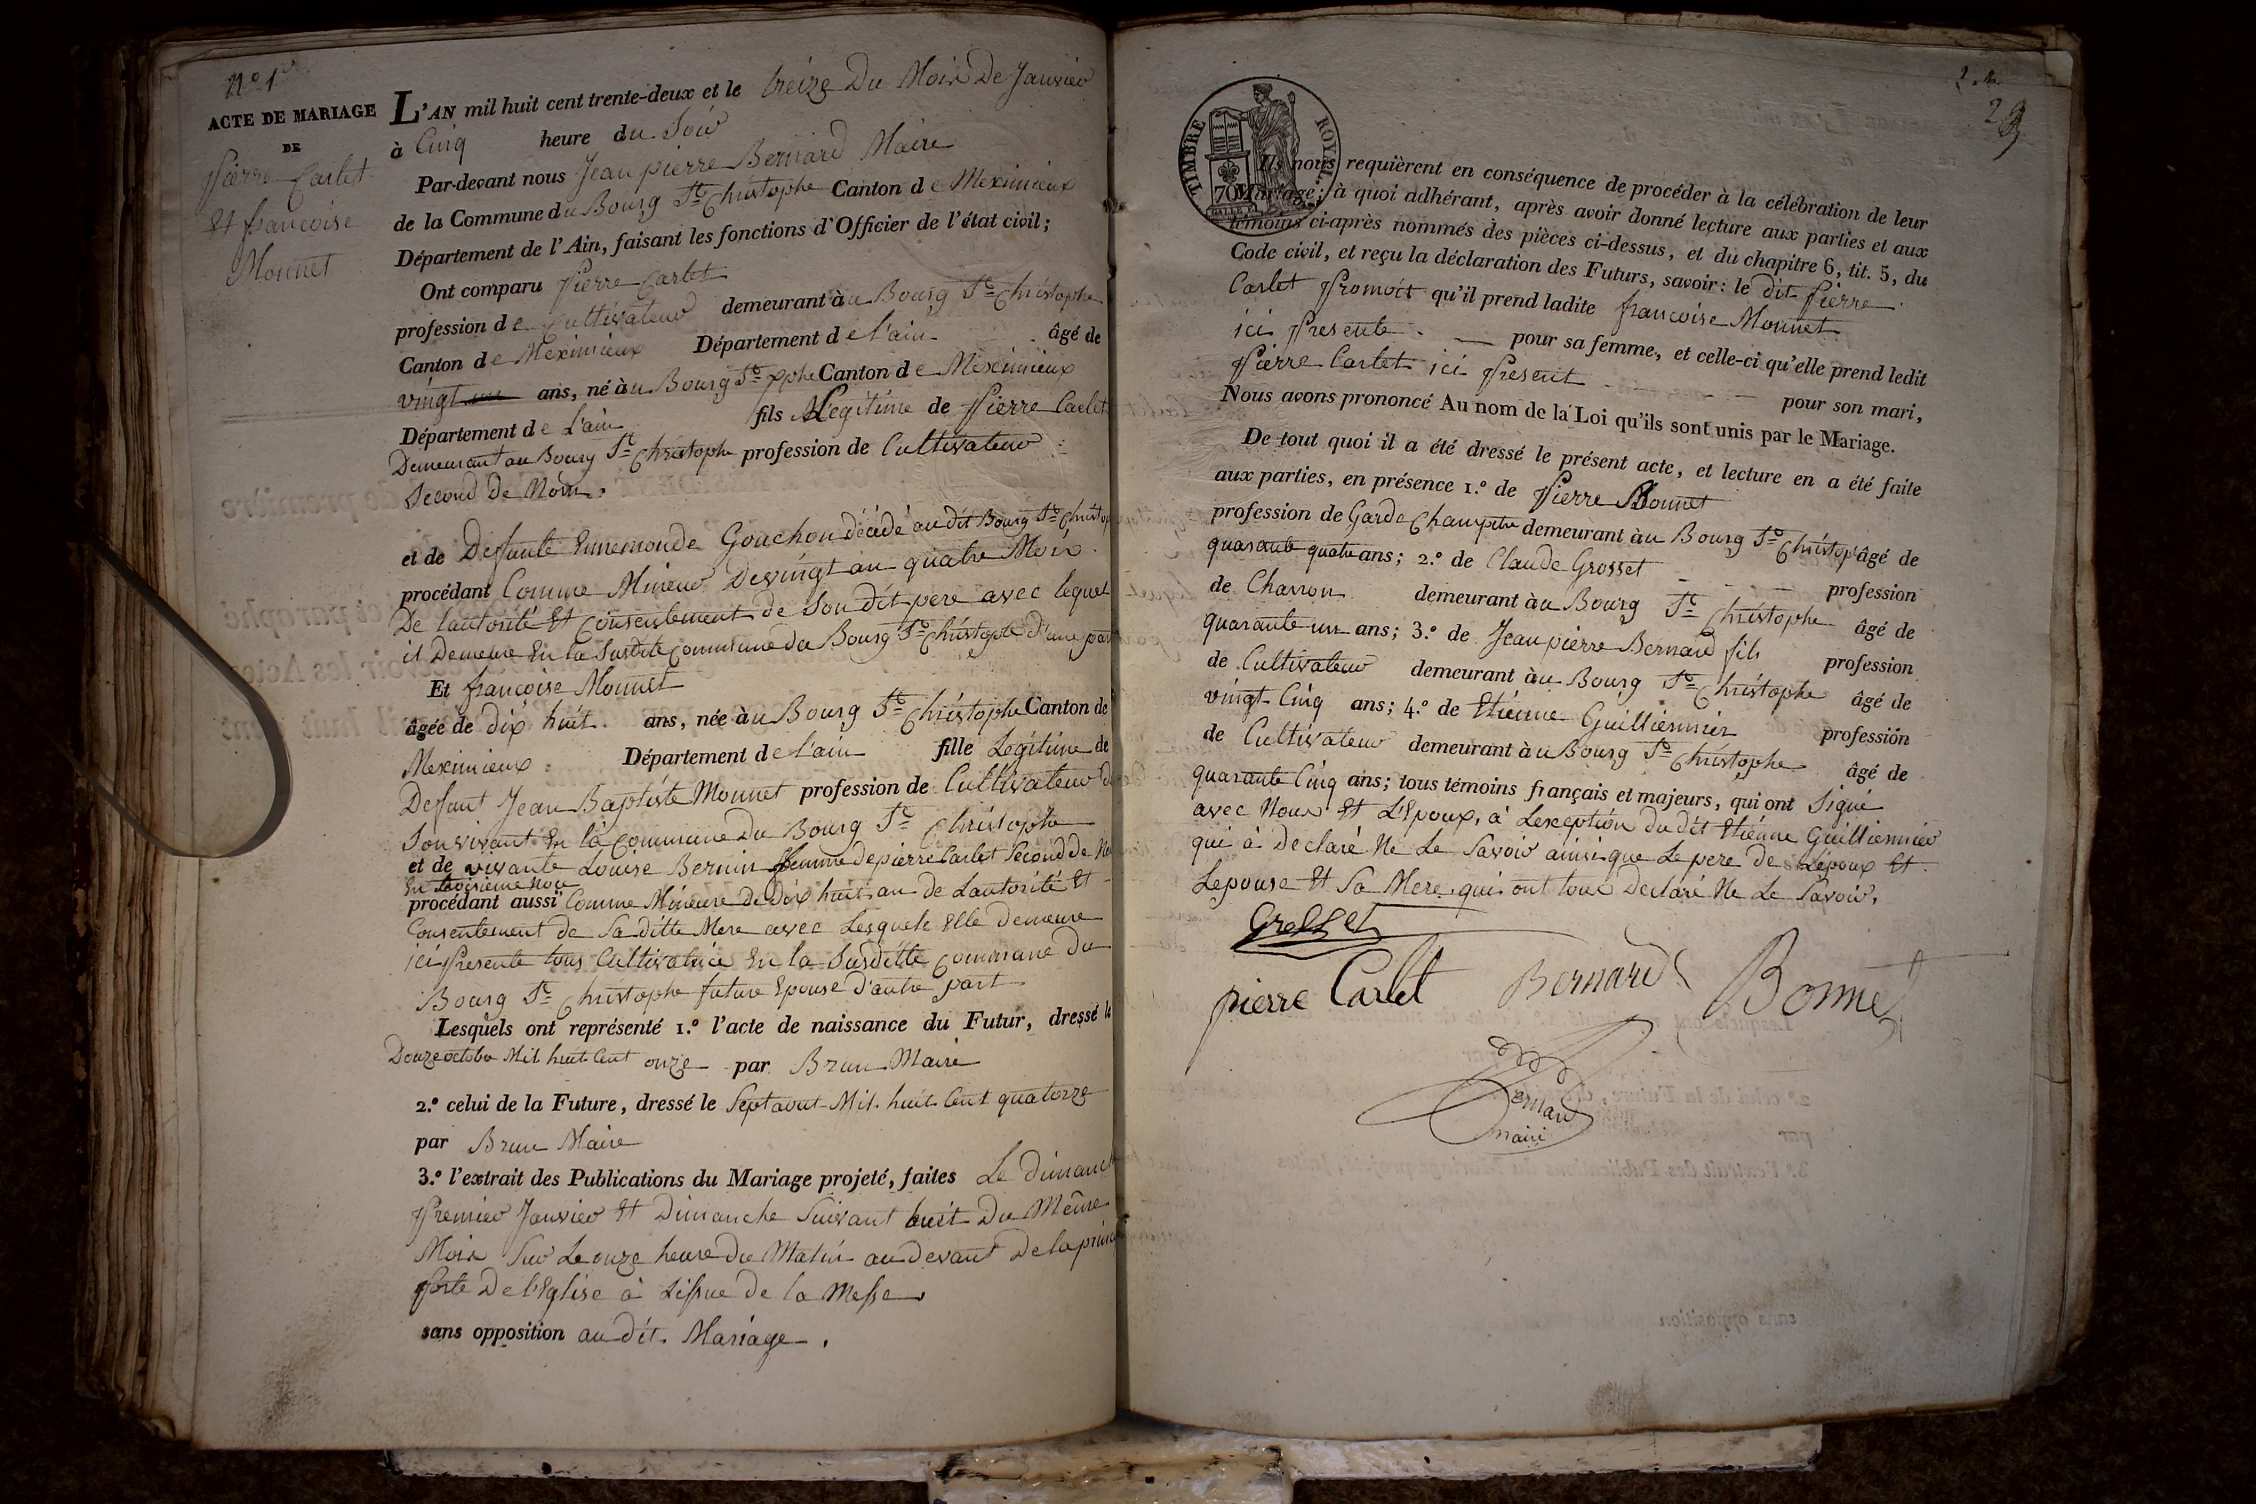 N.o 1er
ACTE DE MARIAGE
DE
Pierre Carlet
Et françoise
Monnet
L'AN mil huit cent trente-deux et le treize Du Mois De Janvier
à Cinq heure du Soir
Par-devant nous Jean pierre Bernard Maire
de la Commune du Bourg St Christophe Canton de Meximieux
Département de l'Ain, faisant les fonctions d'Officier de l'état civil;
Ont comparu Pierre Carlet
profession de Cultivateur demeurant àu Bourg St Christophe
Canton de Meximieux Département de l'ain âgé de
vingt ans, né àu Bourg St xphe Canton de Meximieux
Département de L'ain fils Légitime de Pierre Carlet
Demeurant au Bourg St Christophe profession de Cultivateur
Second de Nom.
et de Defunte Ennemonde Gouchon décédé au dit Bourg St Christop
procédant Comme Mineur De vingt an quatre Mois
De lautorité Et Consentement de Son dit pere avec lequel
il Demeure En la Susdite Commune du Bourg St Christophe d'une part
Et françoise Monnet
âgée de dix huit ans, née àu Bourg St Christophe Canton de
Meximieux Département de l'ain fille Legitime de
Defunt Jean Baptiste Monnet profession de Cultivateur De
Son vivant En la Commune Du Bourg St Christophe
et de vivante Louise Bernin femme de pierre Carlet Second de No
En troisieme Noce
procédant aussi Comme Mineure de dix huit an de Lautorité Et
Consentement de Sa ditte Mere avec Lesquels Elle demeure
ici Presente tous Cultivatrice En la Susditte Commune Du
Bourg St Christophe future Epouse d'autre part
Lesquels ont représenté 1.º l'acte de naissance du Futur, dressé le
Douze octobre Mil huit Cent onze par Brun Maire
2.º celui de la Future, dressé le Sept aout Mil huit Cent quatorze
par Brun Maire
3.º l'extrait des Publications du Mariage projeté, faites Le dimanch
Premier Janvier Et Dimanche Suivant huit Du Même
Mois Sur Le onze heure du Matin au devant De la princi
Porte De l'Eglise à Lissue de la Messe
sans opposition au dit Mariage.
29
TIMBRE ROYAL
70
Ils nous requièrent en conséquence de procéder à la célébration de leur
Mariage; à quoi adhérant, après avoir donné lecture aux parties et aux
témoins ci-après nommés des pièces ci-dessus, et du chapitre 6, tit. 5, du
Code civil, et reçu la déclaration des Futurs, savoir: le dit Pierre
Carlet Promoit qu'il prend ladite françoise Monnet
ici Presente pour sa femme, et celle-ci qu'elle prend ledit
Pierre Carlet ici Present pour son mari,
Nous avons prononcé Au nom de la Loi qu'ils sont unis par le Mariage.
De tout quoi il a été dressé le présent acte, et lecture en a été faite
aux parties, en présence 1.º de Pierre Bonnet
profession de Garde Champetre demeurant àu Bourg St Christop âgé de
quarante quatre ans; 2.º de Claude Grosset profession
de Charron demeurant àu Bourg St Christophe âgé de
quarante un ans; 3.º de Jean pierre Bernard fils profession
de Cultivateur demeurant àu Bourg St Christophe âgé de
vingt Cinq ans; 4.º de Etienne Guilliermier profession
de Cultivateur demeurant àu Bourg St Christophe âgé de
quarante Cinq ans; tous témoins français et majeurs, qui ont Signé
avec Nous Et L'Epoux, à Lexception du dit Etiénne Guilliermier
qui à Declaré Ne Le Savoir ainsi que Le pere de Lépoux Et
Lepouse Et Sa Mere qui ont tous Declaré Ne Le Savoir,
Grosset
pierre Carlet Bernard Bonnet
Bernard
maire